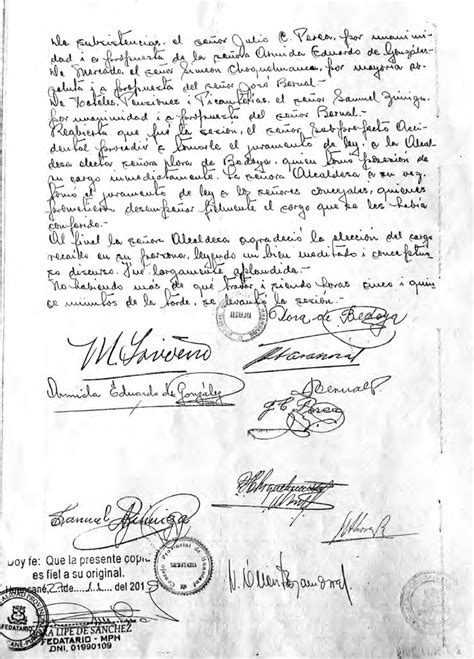 De subsistencias, el señor Julio C. Perea, por unanimi-
dad i a propuesta de la señora Armida Eduardo de González-
De Mercado, el señor Simeon Choquehuanca, por mayoria ab-
soluta i a propuesta del señor José Bernal-
De Hoteles, Pensiones i Picanterias, el señor Samuel Zúñiga,
por unanimidad i a propuesta del señor Bernal-
Reabierta que fué la sesión, el señor Subprefecto Acci-
dental procedió a tomarle el juramento de ley, a la Alcal-
desa electa señora Dora de Bedoya, quien tomó posesión de
su cargo inmediatamente. La señora Alcaldesa a su vez
tomó el juramento de ley a los señores concejales, quienes
prometieron desempeñar fielmente el cargo que se les había
conferido.-
Al final la señora Alcaldesa agradeció la elección del cargo
recaido en su persona, leyendo un bien meditado i
discurso, fué largamente aplaudida.-
No habiendo más de que tratar i siendo horas cinco i quin-
ce minutos de la tarde, se levantó la sesión.-
Dora de Bedoya
Armida Eduardo de González
J Bernal P
J. C. Perea
Samuel Zúñiga
Concejo Provincial de Huancané
SECRETARIA
Doy fe: Que la presente copia
es fiel a su original.
Huancané, de del 201
LIPE DE SANCHEZ
FEDATARIO - MPH
DNI. 01990109
FEDATARIO